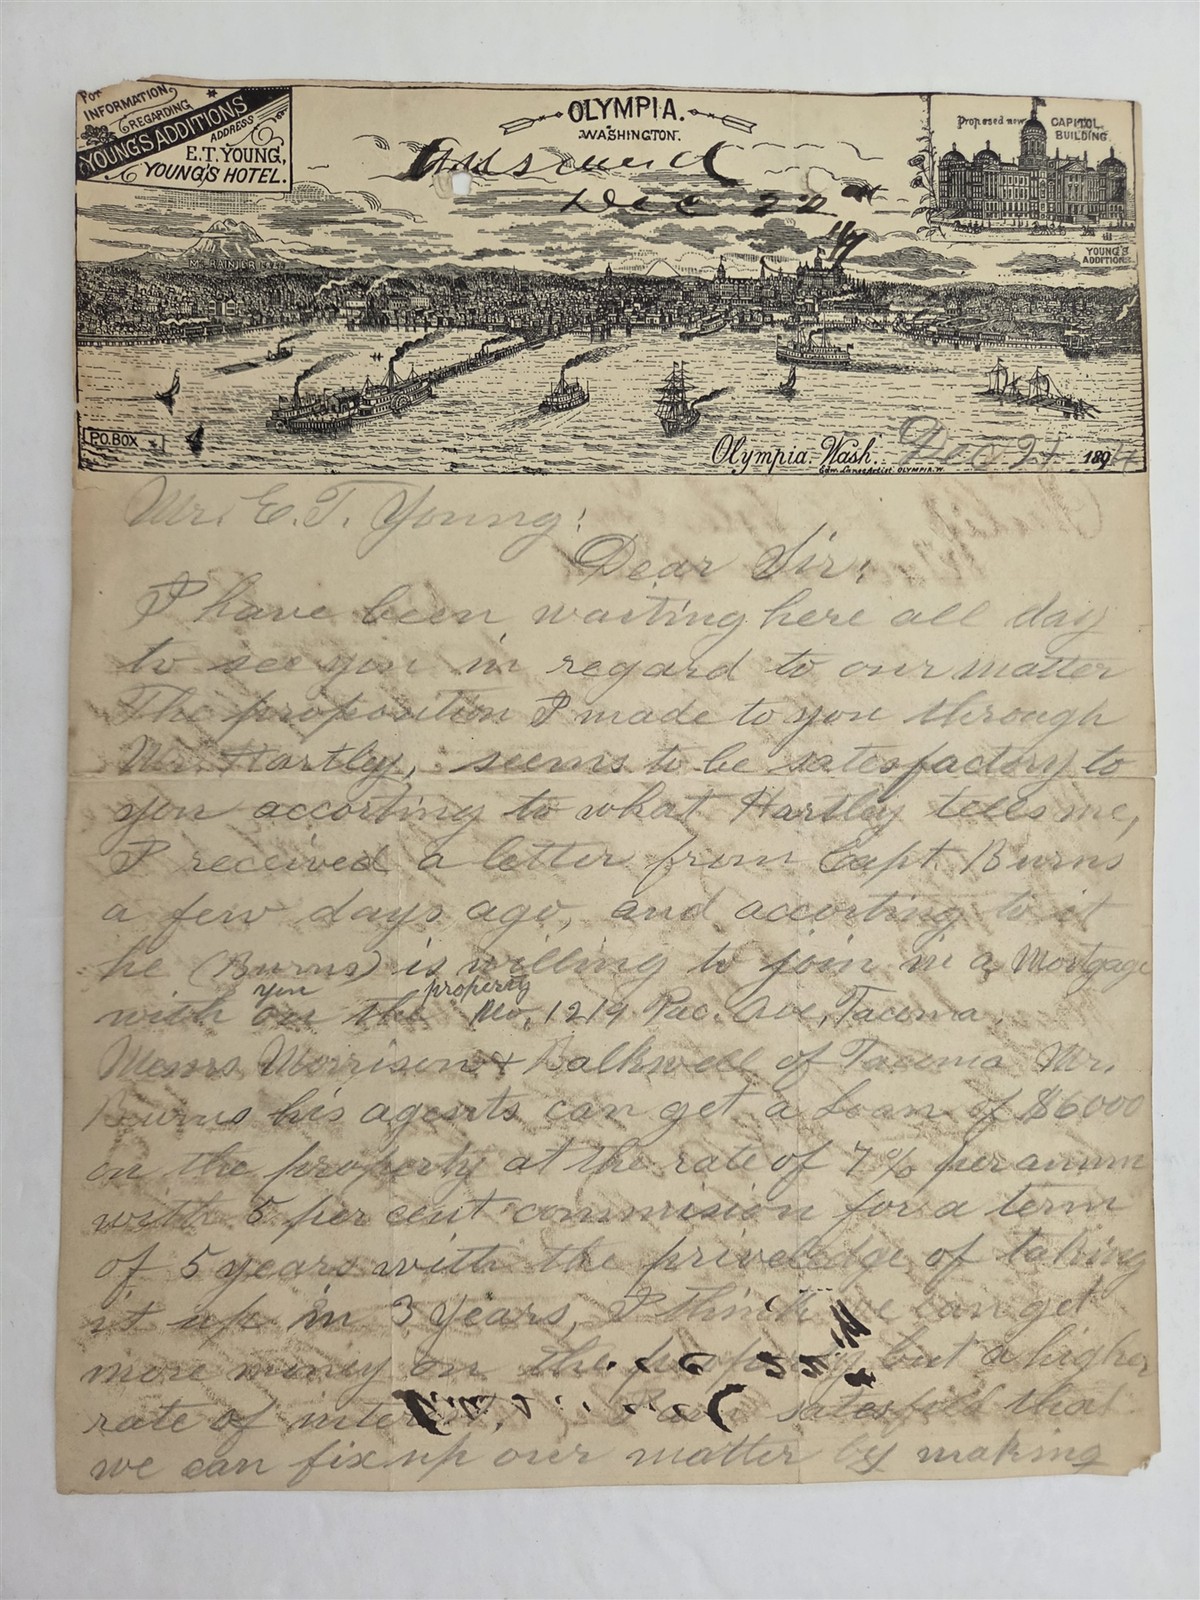 For
INFORMATION
REGARDING
YOUNG'S ADDITIONS
ADDRESS
E.T. YOUNG,
YOUNG'S HOTEL.
OLYMPIA.
WASHINGTON.
Proposed new CAPITOL
BUILDING.
Answered
Dec 22
YOUNG'S
ADDITION
MT. RAINIER
P.O. BOX
Olympia, Wash. Dec 21 1894
Mr. E. T. Young:
Dear Sir:
I have been waiting here all day
to see you in regard to our matter
The proposition I made to you through
Mr. Hartley, seems to be satesfactory to
you accorting to what Hartley tells me,
I received a letter from Capt. Burns
a few days ago, and accorting to it
he (Burns) is willing to join in a Mortgage
you property
with on the No. 1219 Pac. Ave, Tacoma.
Messrs Morrison & Balkwell of Tacoma Mr.
Burns his agents can get a Loan of $6000
on the property at the rate of 7% per anum
with 5 per cent commision for a term
of 5 years with the priveledge of taking
it up in 3 Years, I think we can get
more money on the property but a higher
rate of interest. I am satesfild that
we can fix up our matter by making